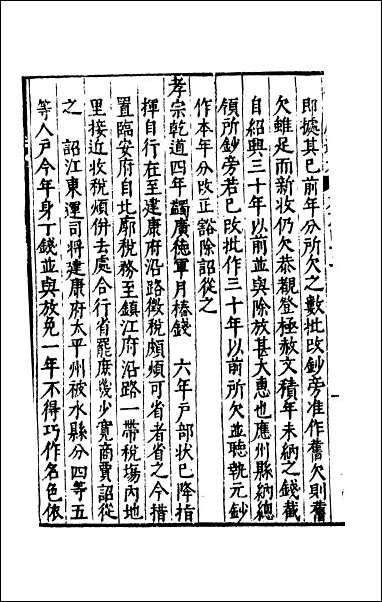 即據其已前年分所欠之數批改鈔旁准作舊欠則舊
欠雖足而新收仍欠恭觀登極赦文積年未納之錢截
自紹興三十年以前並與除放甚大惠也應州縣納總
領所鈔旁若已改批作三十年以前所欠並聽執元鈔
作本年分改正豁除詔從之
孝宗乾道四年蠲廣德軍月樁錢　六年戶部狀已降指
揮自行在至建康府沿路徵稅頗煩可省者省之今措
置臨安府自北郭稅務至鎮江府沿路一帶稅塲內地
里接近收稅煩併去處合行省罷庶幾少寛商賈詔從
之　詔江東運司將建康府太平州被水縣分四等五
等人戶今年身丁錢並與放免一年不得巧作名色依